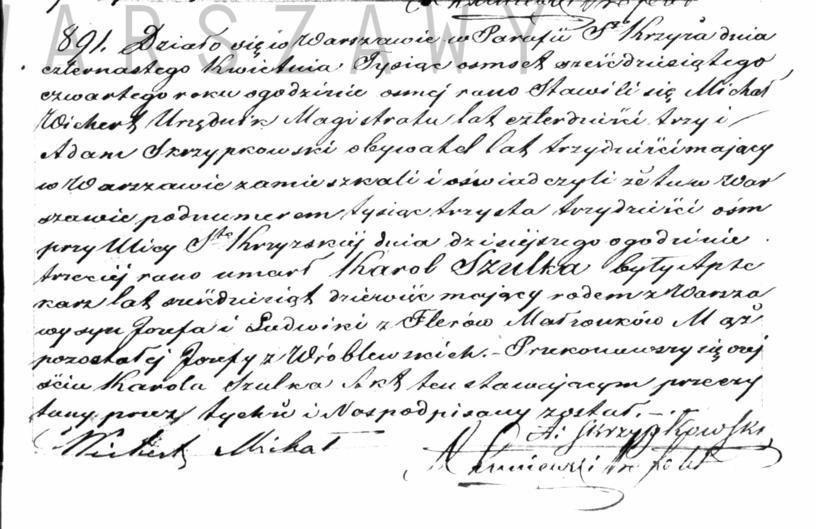 WARSZAWY
891. Działo się w Warszawie w Parafii Sgo Krzyża dnia
czternastego Kwietnia Tysiąc ośmset sześćdziesiątego
czwartego roku o godzinie osmej rano Stawili się Michał
Wichert Urzędnik Magistratu lat czterdzieści trzy i
Adam Skrzypkowski obywatel lat trzydzieści mający
w Warszawie zamieszkali i oświadczyli że tu w War
szawie pod numerem tysiąc trzysta trzydzieści ośm
przy Ulicy Sto Krzyzskiej dnia dzisiejszego o godzinie
trzeciej rano umarł Karol Szulka były Apte
karz lat sześćdziesiąt dziewięć mający rodem z Warsza
wy syn Jozefa i Ludwiki z Flerów Małżonków Mąż
pozostałej Jozefy z Wróblewskich. – Przekonawszy się o zej
ściu Karola Szulka Akt ten stawającym przeczy
tany przez tychż i Nas podpisany został. –
Wichert Michał A. Skrzypkowski